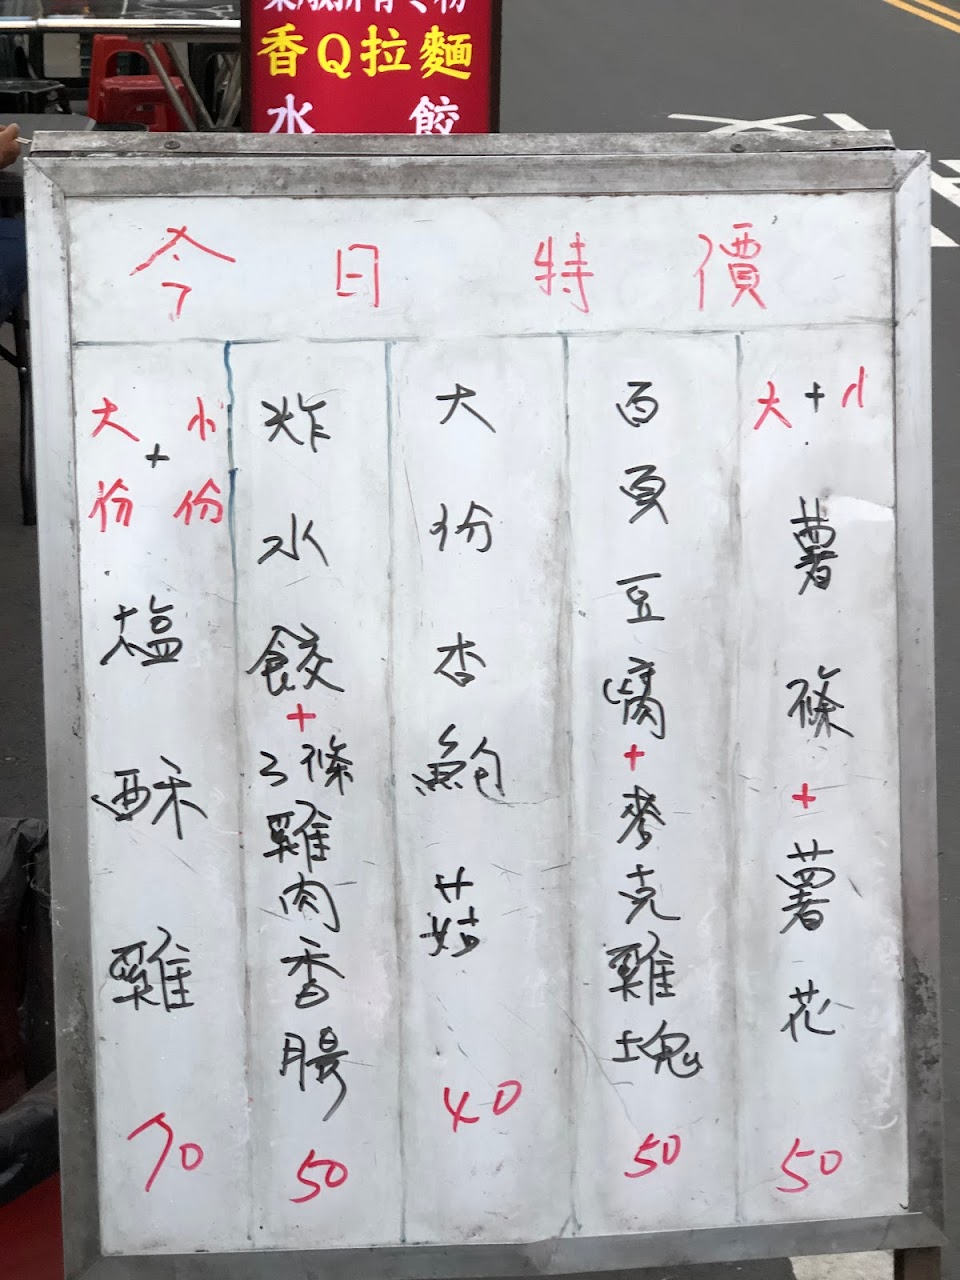 香Q拉麵
水 餃
今日特價
大+小
薯條+薯花
50
百頁豆腐+麥克雞塊
50
大份杏鮑菇
40
炸水餃+3條雞肉香腸
50
大份+小份
塩酥雞
70